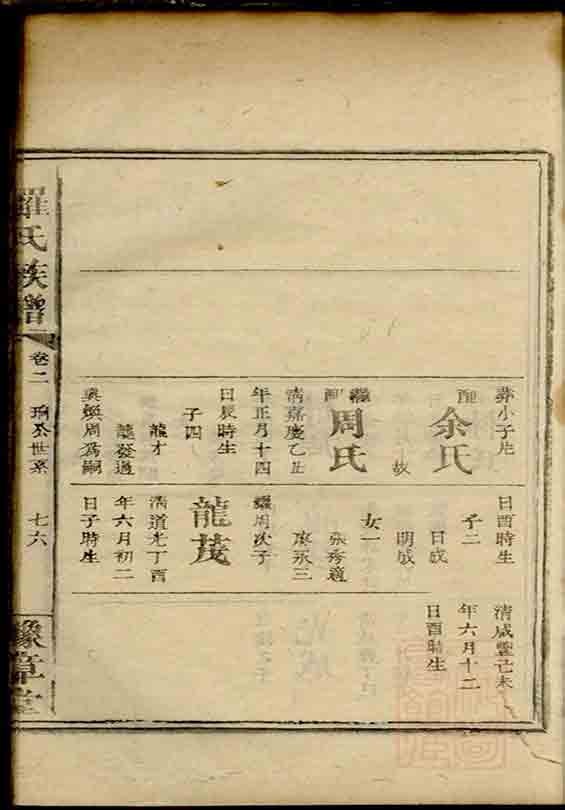 葬小子片
配
余氏
故
繼配
周氏
清嘉慶乙丑
年正月十四
日辰時生
子四
龍才
龍發過
與煥周為嗣
日酉時生
子二
日成
明成
女一
張秀適
廖永三
繼周次子
龍茂
清道光丁酉
年六月初二
日子時生
清咸豐己未
年六月十二
日酉時生
羅氏族譜
卷二
世系
七六
豫章堂